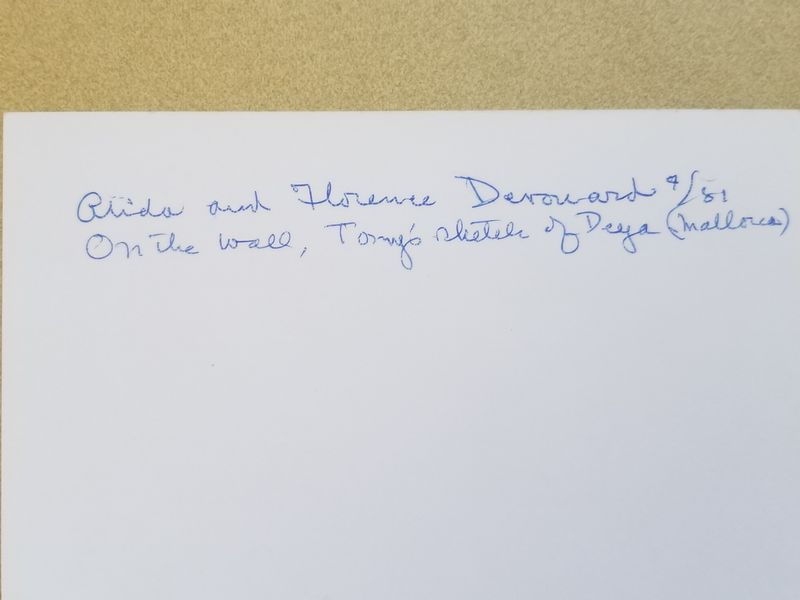 and Florence Devouard 9/81
On the wall, Tony's sketch of Deya (Mallorca)